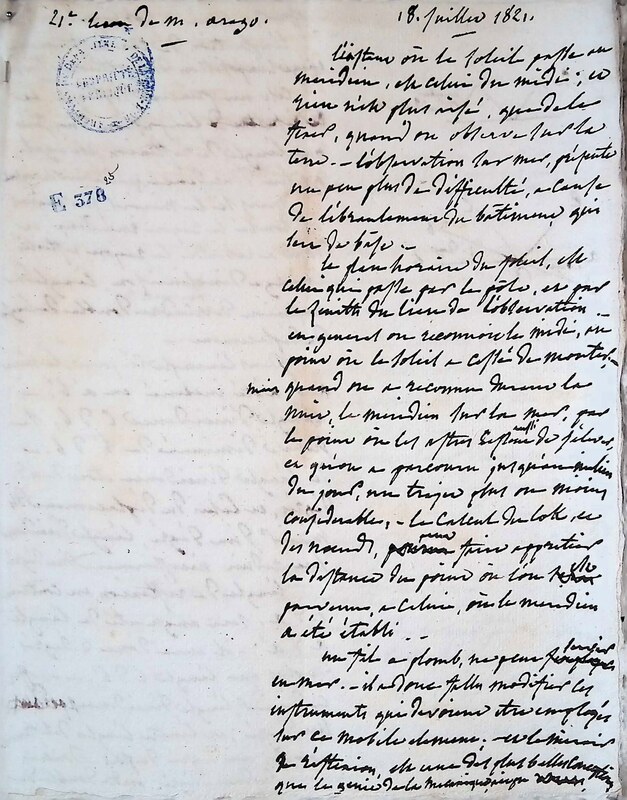 21e leçon de m. arago.
18. juillet 1821.
E 378
l'instant où le soleil passe au
meridien, est celui du midi; et
rien n'est plus aisé, que de le
fixer, quand on observe sur la
terre. - l'observation sur mer, présente
un peu plus de difficulté, a cause
de l'ébranlement du bâtiment qui
sert de base -
le plan horaire du soleil, est
celui qui passe par le pôle, et par
le zénith du lieu de l'observation -
en general on reconnoit le midi, au
point où le soleil a cessé de monter -
mais quand on a reconnu durant la
nuit, le meridien sur la mer, par
le point où les astres cessent aussi de s'élever
on a parcouru jusqu'au milieu
du jour, un trajet plus ou moins
considerable, - le calcul du lok, et
des noeuds, peut faire apprecier
la distance du point où l'on est
parvenu, a celui, où le meridien
a été établi -
un fil a plomb, ne peut servir
en mer. - il a donc fallu modifier les
instruments qui devoient etre employés
sur ce mobile element; - et le miroir
de réflexion, est une des plus belles inventions
que le genie de la